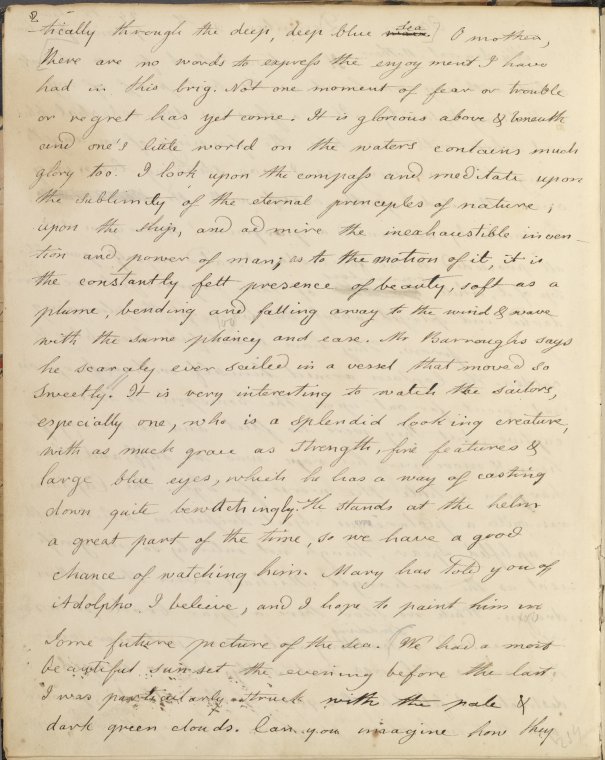 2
tically through the deep, deep blue sea] O mother,
There are no words to express the enjoyment I have
had in this brig. Not one moment of fear or trouble
or regret has yet come. It is glorious above & beneath
and one's little world on the waters contains much
glory too. I look upon the compass and meditate upon
the sublimity of the eternal principles of nature;
upon the ship, and admire the inexhaustible inven-
tion and power of man; as to the motion of it, it is
the constantly felt presence of beauty, soft as a
plume, bending and falling away to the wind & wave
with the same phancy and ease. Mr Burroughs says
he scarcely ever sailed in a vessel that moved so
sweetly. It is very interesting to watch the sailors,
especially one, who is a splendid looking creature,
with as much grace as strength, fine features &
large blue eyes, which he has a way of casting
down quite bewitchingly. He stands at the helm
a great part of the time, so we have a good
chance of watching him. Mary has told you of
Adolpho I believe, and I hope to paint him in
some future picture of the sea. (We had a most
beautiful sunset the evening before the last.
I was particularly struck with the pale &
dark green clouds. Can you imagine how they